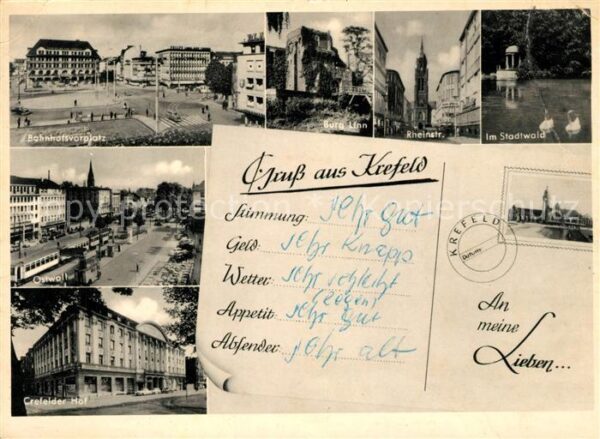 Bahnhofsvorplatz
Burg Linn
Rheinstr.
Im Stadtwald
Ostwall
Crefelder Hof
Gruß aus Krefeld
Stimmung: sehr gut
Geld: sehr knapp
Wetter: sehr schleiht
(Regen)
Appetit: sehr gut
Absender: sehr alt
KREFELD
An
meine
Lieben...